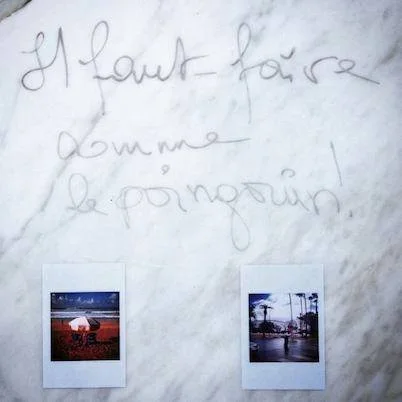 Il faut faire
comme
le poingouin!